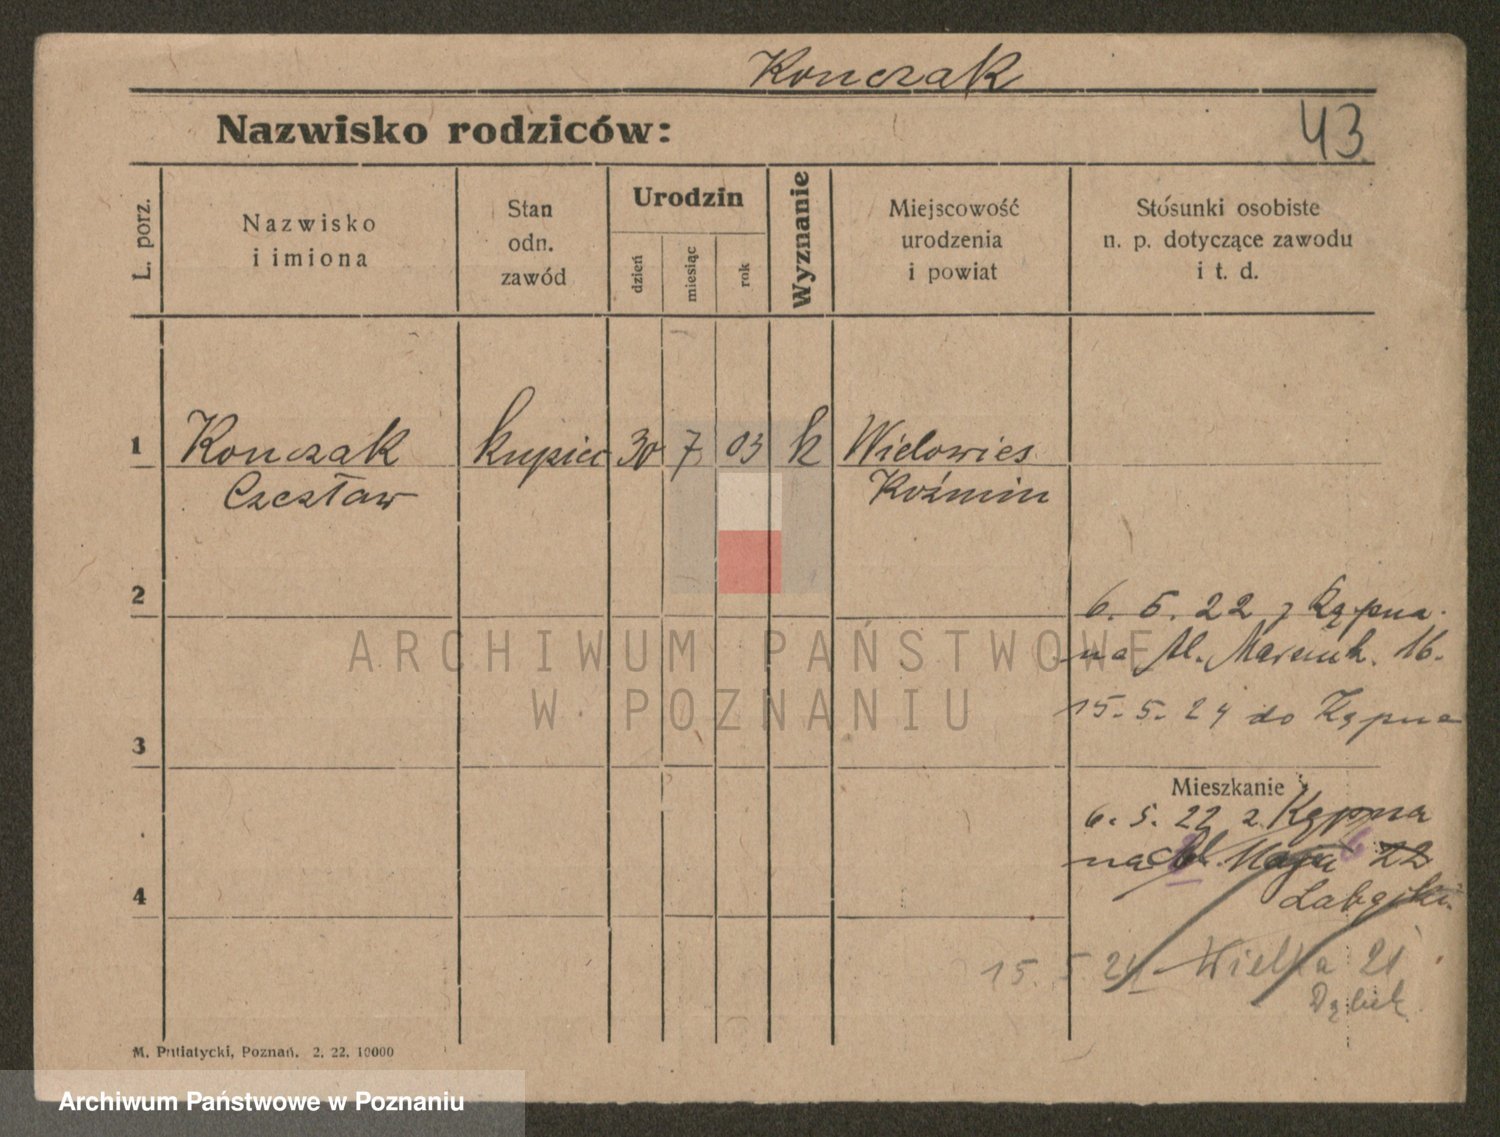 Konczak
Nazwisko rodziców:
43
L. porz.
Nazwisko
i imiona
Stan
odn.
zawód
Urodzin
dzień
miesiąc
rok
Wyznanie
Miejscowość
urodzenia
i powiat
Stósunki osobiste
n. p. dotyczące zawodu
i t. d.
1
Konczak
Czesław
kupiec
30
7
03
k
Wielowies
Koźmin
2
6. 5. 22 z Kępna
na Al. Marcink. 16.
15. 5. 24 do Kępna
3
Mieszkanie
6. 5. 22 z Kępna
na 22
4
15. 5. 24 Wielka 21
ARCHIWUM PAŃSTWOWE
W POZNANIU
M. Putiatycki, Poznań. 2. 22. 10000
Archiwum Państwowe w Poznaniu